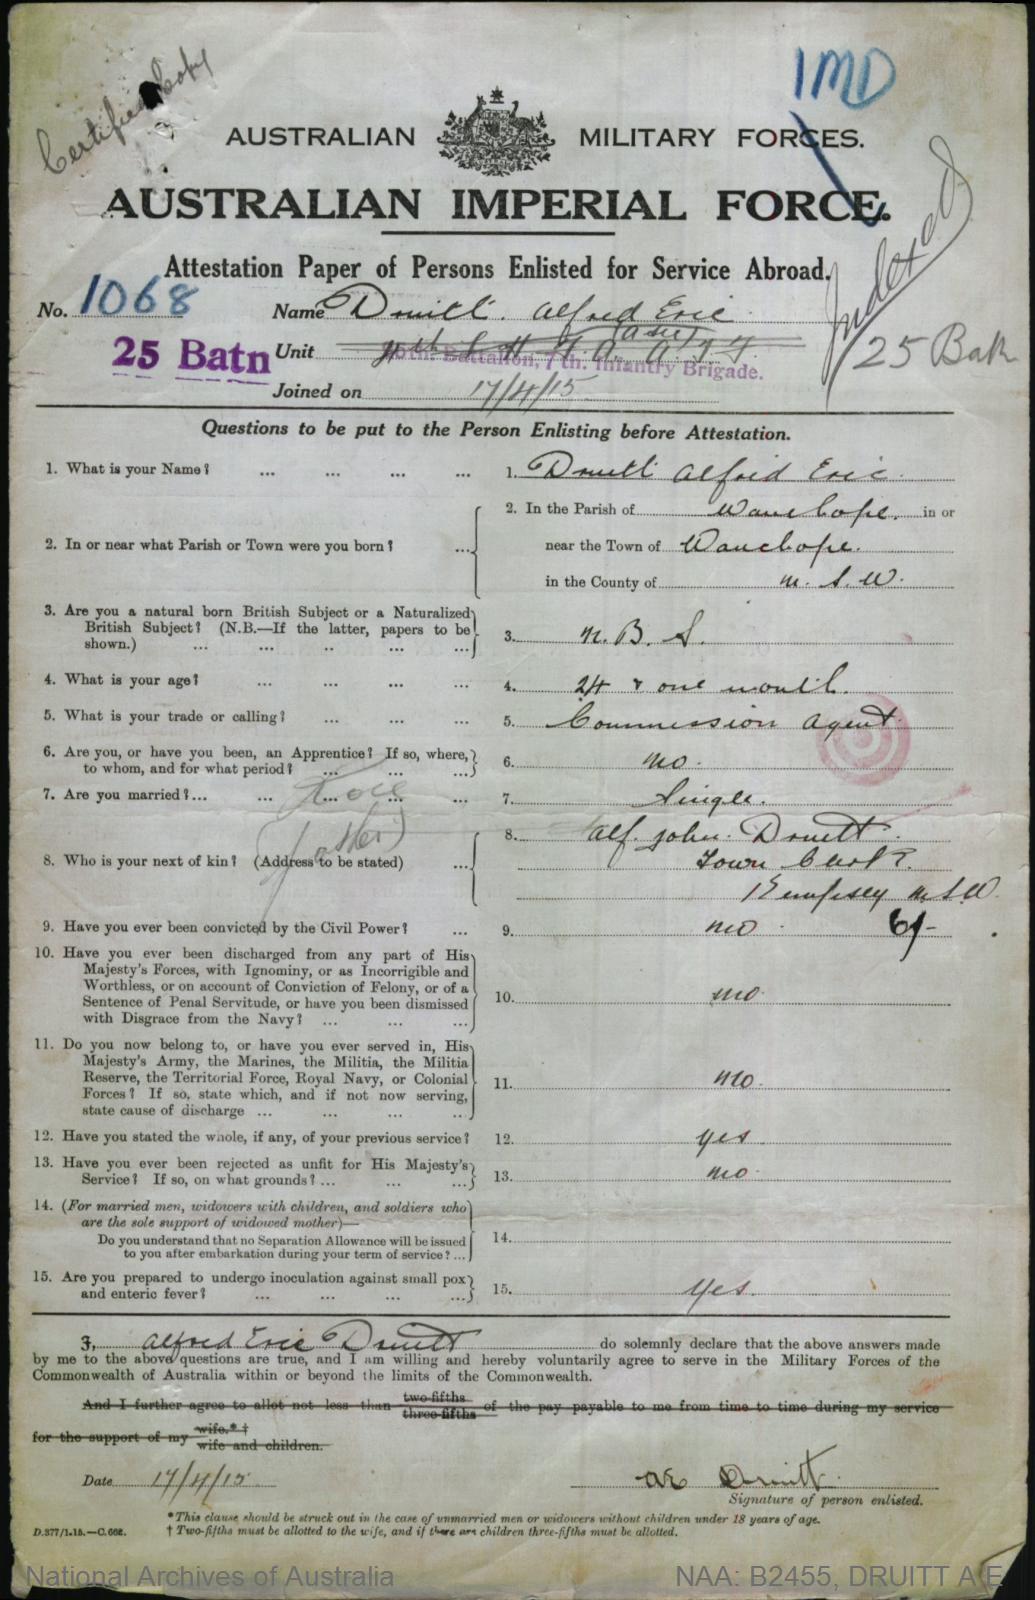 Certified Copy
1MD
AUSTRALIAN MILITARY FORCES.
AUSTRALIAN IMPERIAL FORCE.
Attestation Paper of Persons Enlisted for Service Abroad.
Indexed
No. 1068 Name Druitt. Alfred Eric
25 Batn Unit Battalion, 7th. Infantry Brigade.
25 Batn
Joined on 17/4/15
Questions to be put to the Person Enlisting before Attestation.
1. What is your Name? ... ... ... ... 1. Druitt Alfred Eric.
2. In or near what Parish or Town were you born? ... 2. In the Parish of Wauchope. in or
near the Town of Wauchope.
in the County of N. S. W.
3. Are you a natural born British Subject or a Naturalized
British Subject? (N.B.—If the latter, papers to be
shown.) ... ... .. ... ... 3. N. B. S.
4. What is your age? ... ... ... 4. 24 & one month.
5. What is your trade or calling? ... ... ... 5. Commission Agent.
6. Are you, or have you been, an Apprentice? If so, where,
to whom, and for what period? ... ... ... 6. no.
7. Are you married?... ... ... ... ... 7. Single.
(father)
8. Who is your next of kin? (Address to be stated) ... 8. Alf. John. Druitt.
Town Clerk.
Kempsey N.S.W.
9. Have you ever been convicted by the Civil Power? ... 9. no. 6/-
10. Have you ever been discharged from any part of His
Majesty's Forces, with Ignominy, or as Incorrigible and
Worthless, or on account of Conviction of Felony, or of a
Sentence of Penal Servitude, or have you been dismissed
with Disgrace from the Navy? ... ... ... 10. no.
11. Do you now belong to, or have you ever served in, His
Majesty's Army, the Marines, the Militia, the Militia
Reserve, the Territorial Force, Royal Navy, or Colonial
Forces? If so, state which, and if not now serving,
state cause of discharge ... ... ... .. 11. no.
12. Have you stated the whole, if any, of your previous service? 12. yes
13. Have you ever been rejected as unfit for His Majesty's
Service? If so, on what grounds? ... ... ... 13. no.
14. (For married men, widowers with children, and soldiers who
are the sole support of widowed mother)—
Do you understand that no Separation Allowance will be issued
to you after embarkation during your term of service? ... 14.
15. Are you prepared to undergo inoculation against small pox
and enteric fever? ... ... ... ... 15. yes.
I, Alfred Eric Druitt do solemnly declare that the above answers made
by me to the above questions are true, and I am willing and hereby voluntarily agree to serve in the Military Forces of the
Commonwealth of Australia within or beyond the limits of the Commonwealth.
And I further agree to allot not less than two-fifths three-fifths of the pay payable to me from time to time during my service
for the support of my wife.*† wife and children.
Date 17/4/15 AE Druitt.
Signature of person enlisted.
* This clause should be struck out in the case of unmarried men or widowers without children under 18 years of age.
† Two-fifths must be allotted to the wife, and if there are children three-fifths must be allotted.
D.377/1.15.—C.662.
National Archives of Australia NAA: B2455, DRUITT A E